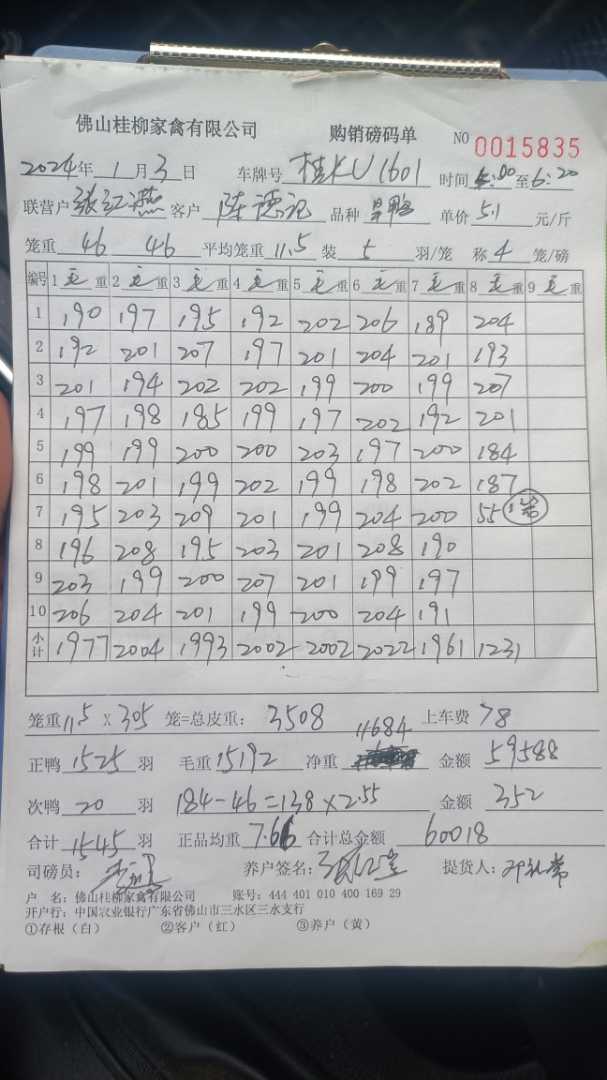 佛山桂柳家禽有限公司 购销磅码单 NO 0015835
2024年 1月3日 车牌号 桂KU1601 时间 5:00至6:20
联营户 张红燕 客户 陈德记 品种 单价 5.1 元/斤
笼重 46 46 平均笼重 11.5 装 5 羽/笼 称 4 笼/磅
编号 1毛重 2毛重 3毛重 4毛重 5毛重 6毛重 7毛重 8毛重 9毛重
1 190 197 195 192 202 206 189 204
2 192 201 207 197 201 204 201 193
3 201 194 202 202 199 200 199 207
4 197 198 185 199 197 202 192 201
5 199 199 200 200 203 197 200 184
6 198 201 199 202 199 198 202 187
7 195 203 209 201 199 204 200 55 1笼
8 196 208 195 203 201 208 190
9 203 199 200 207 201 199 197
10 206 204 201 199 200 204 191
小计 1977 2004 1993 2002 2002 2022 1961 1231
笼重11.5 X 305 笼=总皮重: 3508 上车费 78
正鸭 1525 羽 毛重 15192 净重 11684 金额 59588
次鸭 20 羽 184-46=138×2.55 金额 352
合计 1545 羽 正品均重 7.66 合计总金额 60018
司磅员: 养户签名: 提货人:
户 名: 佛山桂柳家禽有限公司 账号: 444 401 010 400 169 29
开户行: 中国农业银行广东省佛山市三水区三水支行
①存根（白） ②客户（红） ③养户（黄）